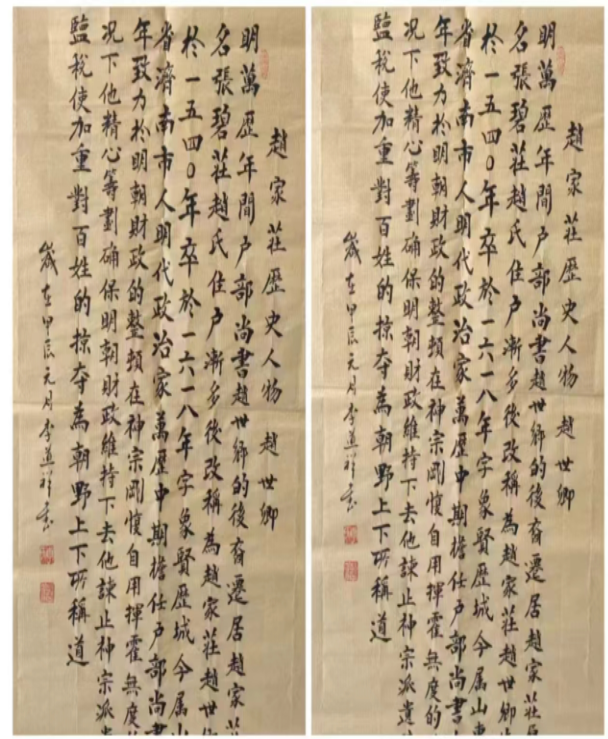 趙家莊歷史人物趙世卿
明萬歷年間户部尚書趙世卿的後裔遷居趙家莊
名張碧莊趙氏住户漸多後改稱為趙家莊趙世卿
於一五四〇年卒於一六一八年字象賢歷城今屬山
省濟南市人明代政治家萬歷中期擔任户部尚書
年致力於明朝財政的整頓在神宗剛愎自用揮霍無度的
况下他精心籌劃确保明朝財政維持下去他諫止神宗派遣
監稅使加重對百姓的掠夺為朝野上下所稱道
歲在甲辰元月李道祥書
趙家莊歷史人物趙世卿
明萬歷年間户部尚書趙世卿的後裔遷居趙家莊
名張碧莊趙氏住户漸多後改稱為趙家莊趙世卿
於一五四〇年卒於一六一八年字象賢歷城今屬山東
省濟南市人明代政治家萬歷中期擔任户部尚書
年致力於明朝財政的整頓在神宗剛愎自用揮霍無度的
况下他精心籌劃确保明朝財政維持下去他諫止神宗派遣
監稅使加重對百姓的掠夺為朝野上下所稱道
歲在甲辰元月李道祥書